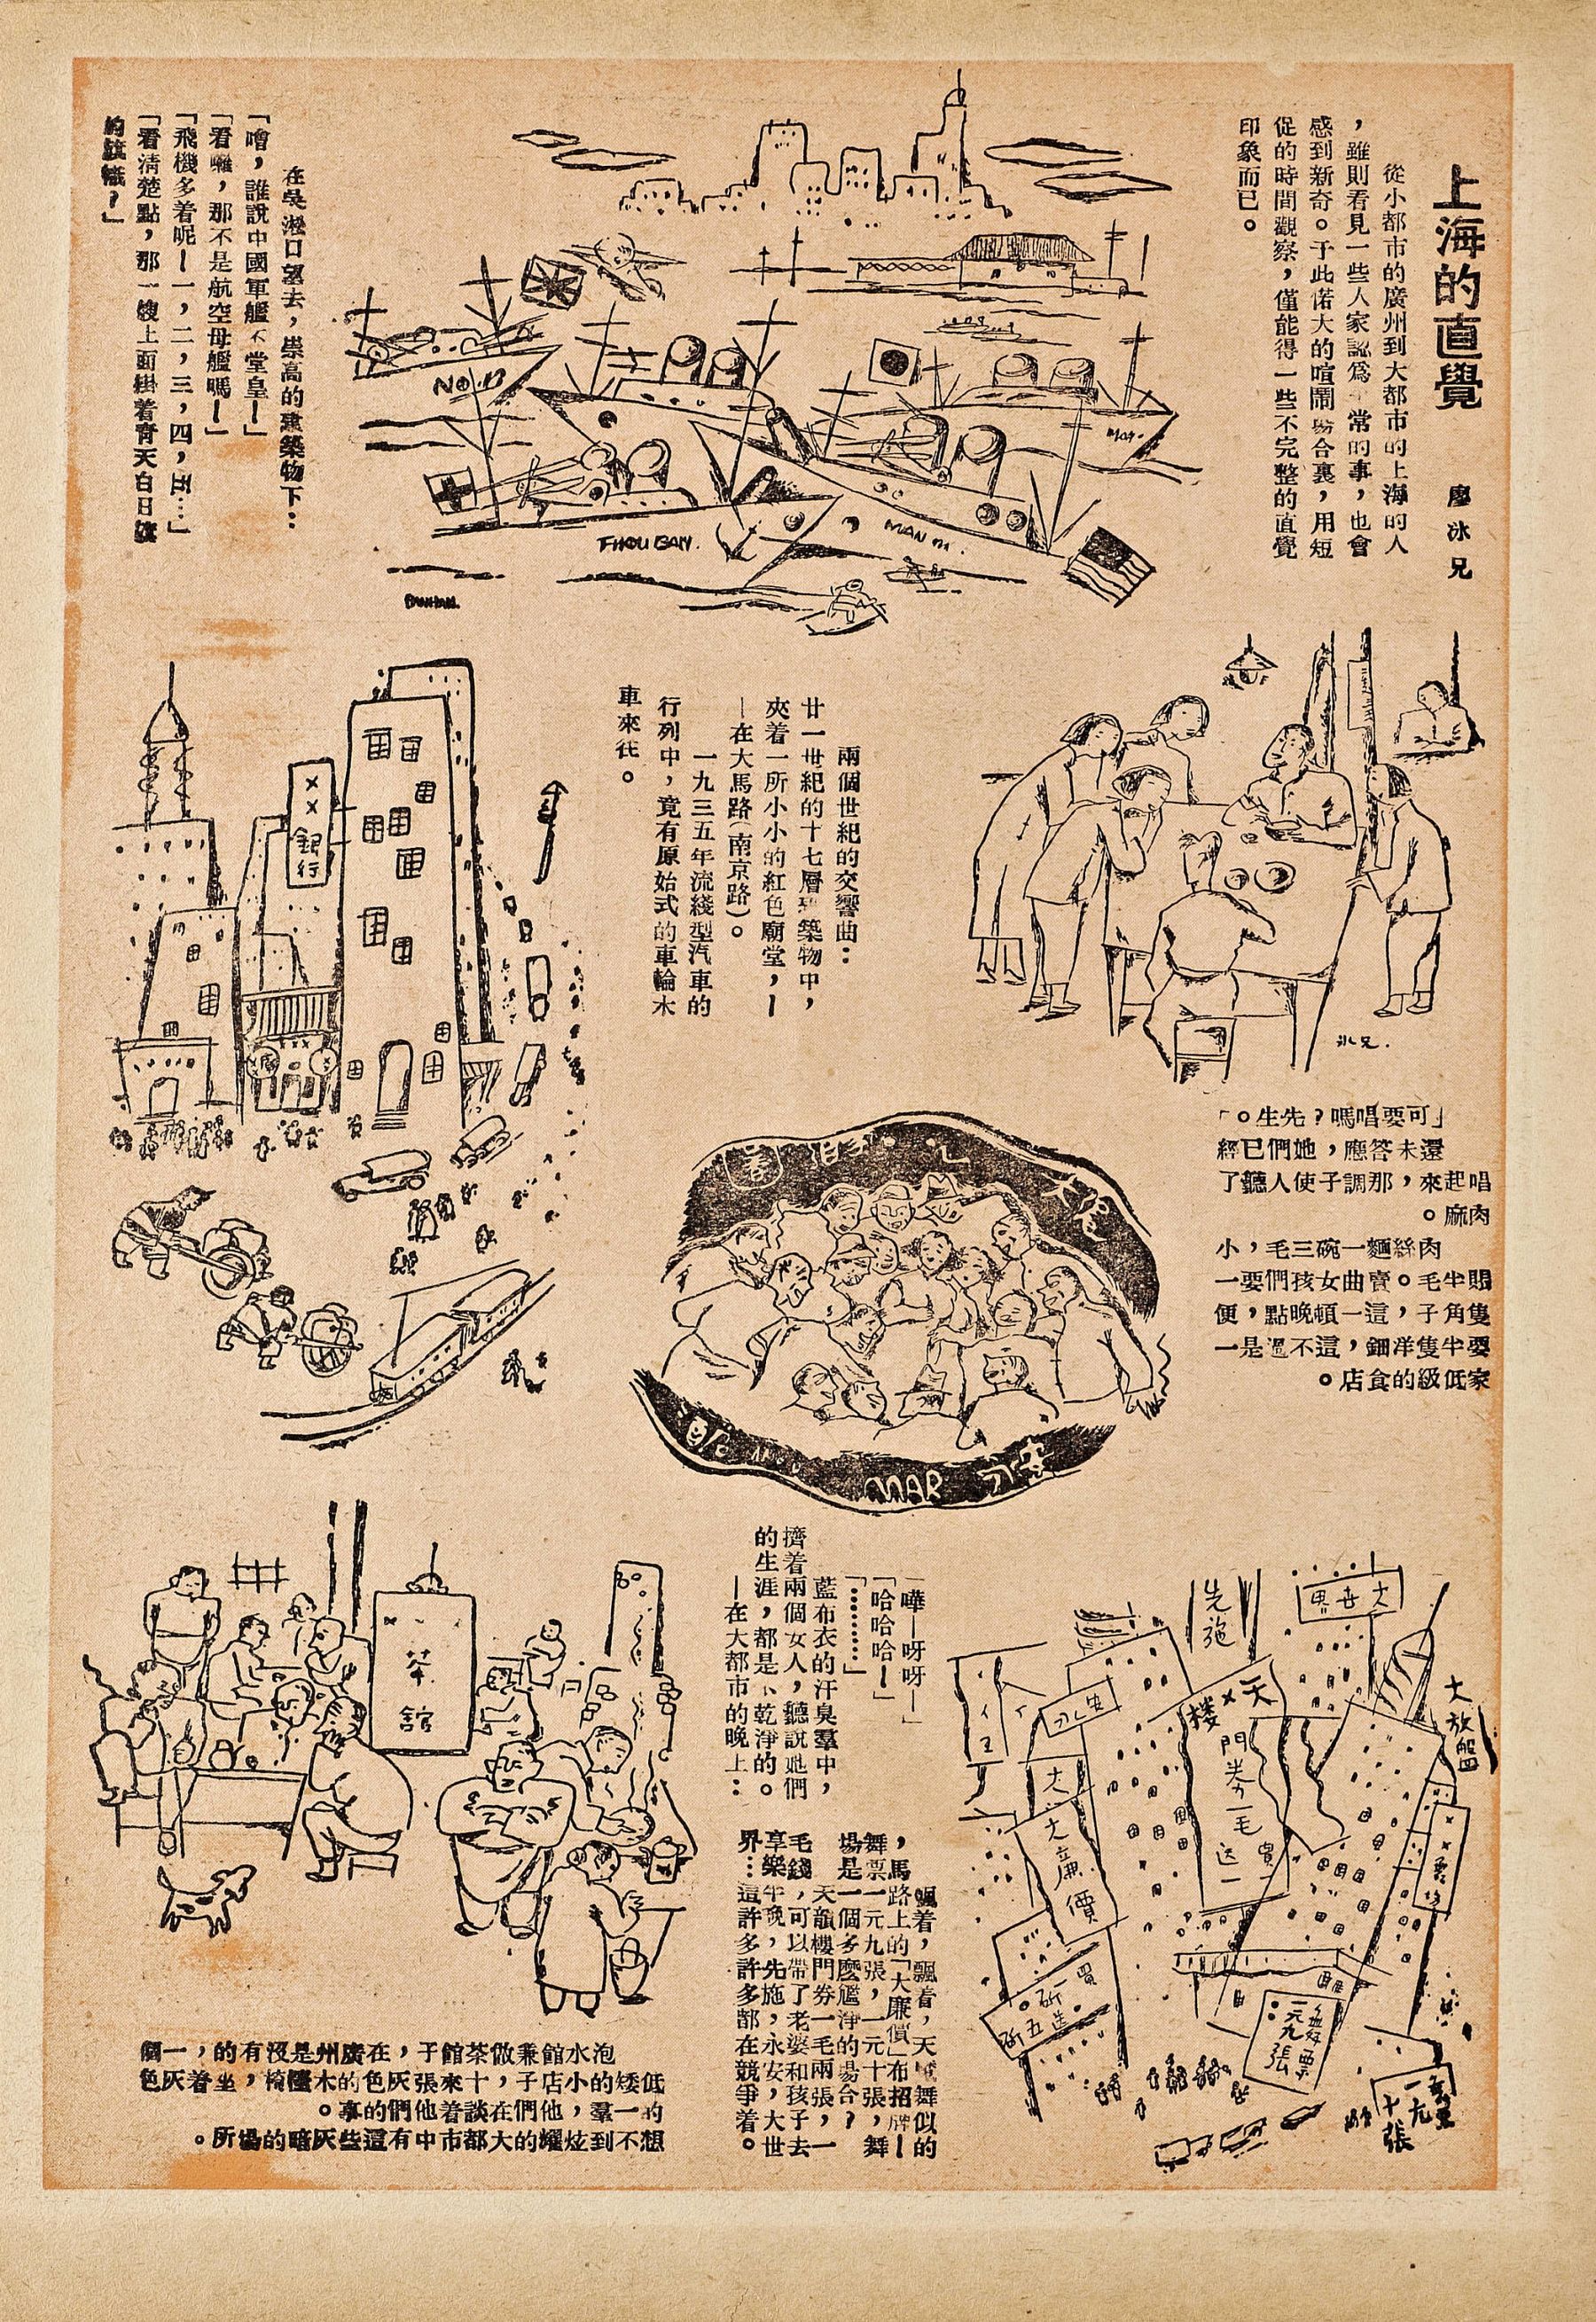 上海的直覺
廖冰兄
從小都市的廣州到大都市的上海的人
，雖則看見一些人家認爲 常的事，也會
感到新奇。于此偌大的喧鬧場合裏，用短
促的時間觀察，僅能得一些不完整的直覺
印象而已。
在吳淞口望去，崇高的建築物下：
「噲，誰說中國軍艦不堂皇—」
「看囉，那不是航空母艦嗎—」
「飛機多着呢—一，二，三，四，五…」
「看清楚點，那一艘上面掛着青天白日旗
的旗幟？」
NO.13
MAN
THOU
兩個世紀的交響曲：
廿一世紀的十七層建築物中，
夾着一所小小的紅色廟堂，—
—在大馬路（南京路）。
一九三五年流綫型汽車的
行列中，竟有原始式的車輪木
車來往。
××銀行
冰兄.
「可要唱嗎？先生。」
還未答應，她們已經
唱起來，那調子使人聽了
肉麻。
肉絲麵一碗三毛，小
賬半毛。賣曲女孩們要一
隻角子，這一頓晚點，便
要半隻洋鈿，這不過是一
家低級的食店。
大
MAR
永安
「嘩—呀呀—」
「哈哈哈—」
「………」
藍布衣的汗臭羣中，
擠着兩個女人，聽說她們
的生涯，都是不乾淨的。
—在大都市的晚上：
飄着，飄着，天 舞似的
，馬路上的「大廉價」布招牌—
舞票一元九張，一元十張，舞
場是一個多麼尷淨的場合？
天韻樓門券一毛兩張，一
毛錢，可以帶了老婆和孩子去
享樂半晚，先施，永安，大世
界…這許多許多都在競爭着。
先施
大世界
大放盤
永安
天×樓
門券一毛
買一送一
大
大廉價
買一斫送五斫
舞票
一元九張
一元十張
茶館
泡水館兼做茶館子，在廣州是沒有的，一個
低矮的小店子，十來張灰色的木檯椅，坐着灰色
的一羣，他們在談着他們的事。
想不到炫耀的大都市中有這些灰暗的場所。